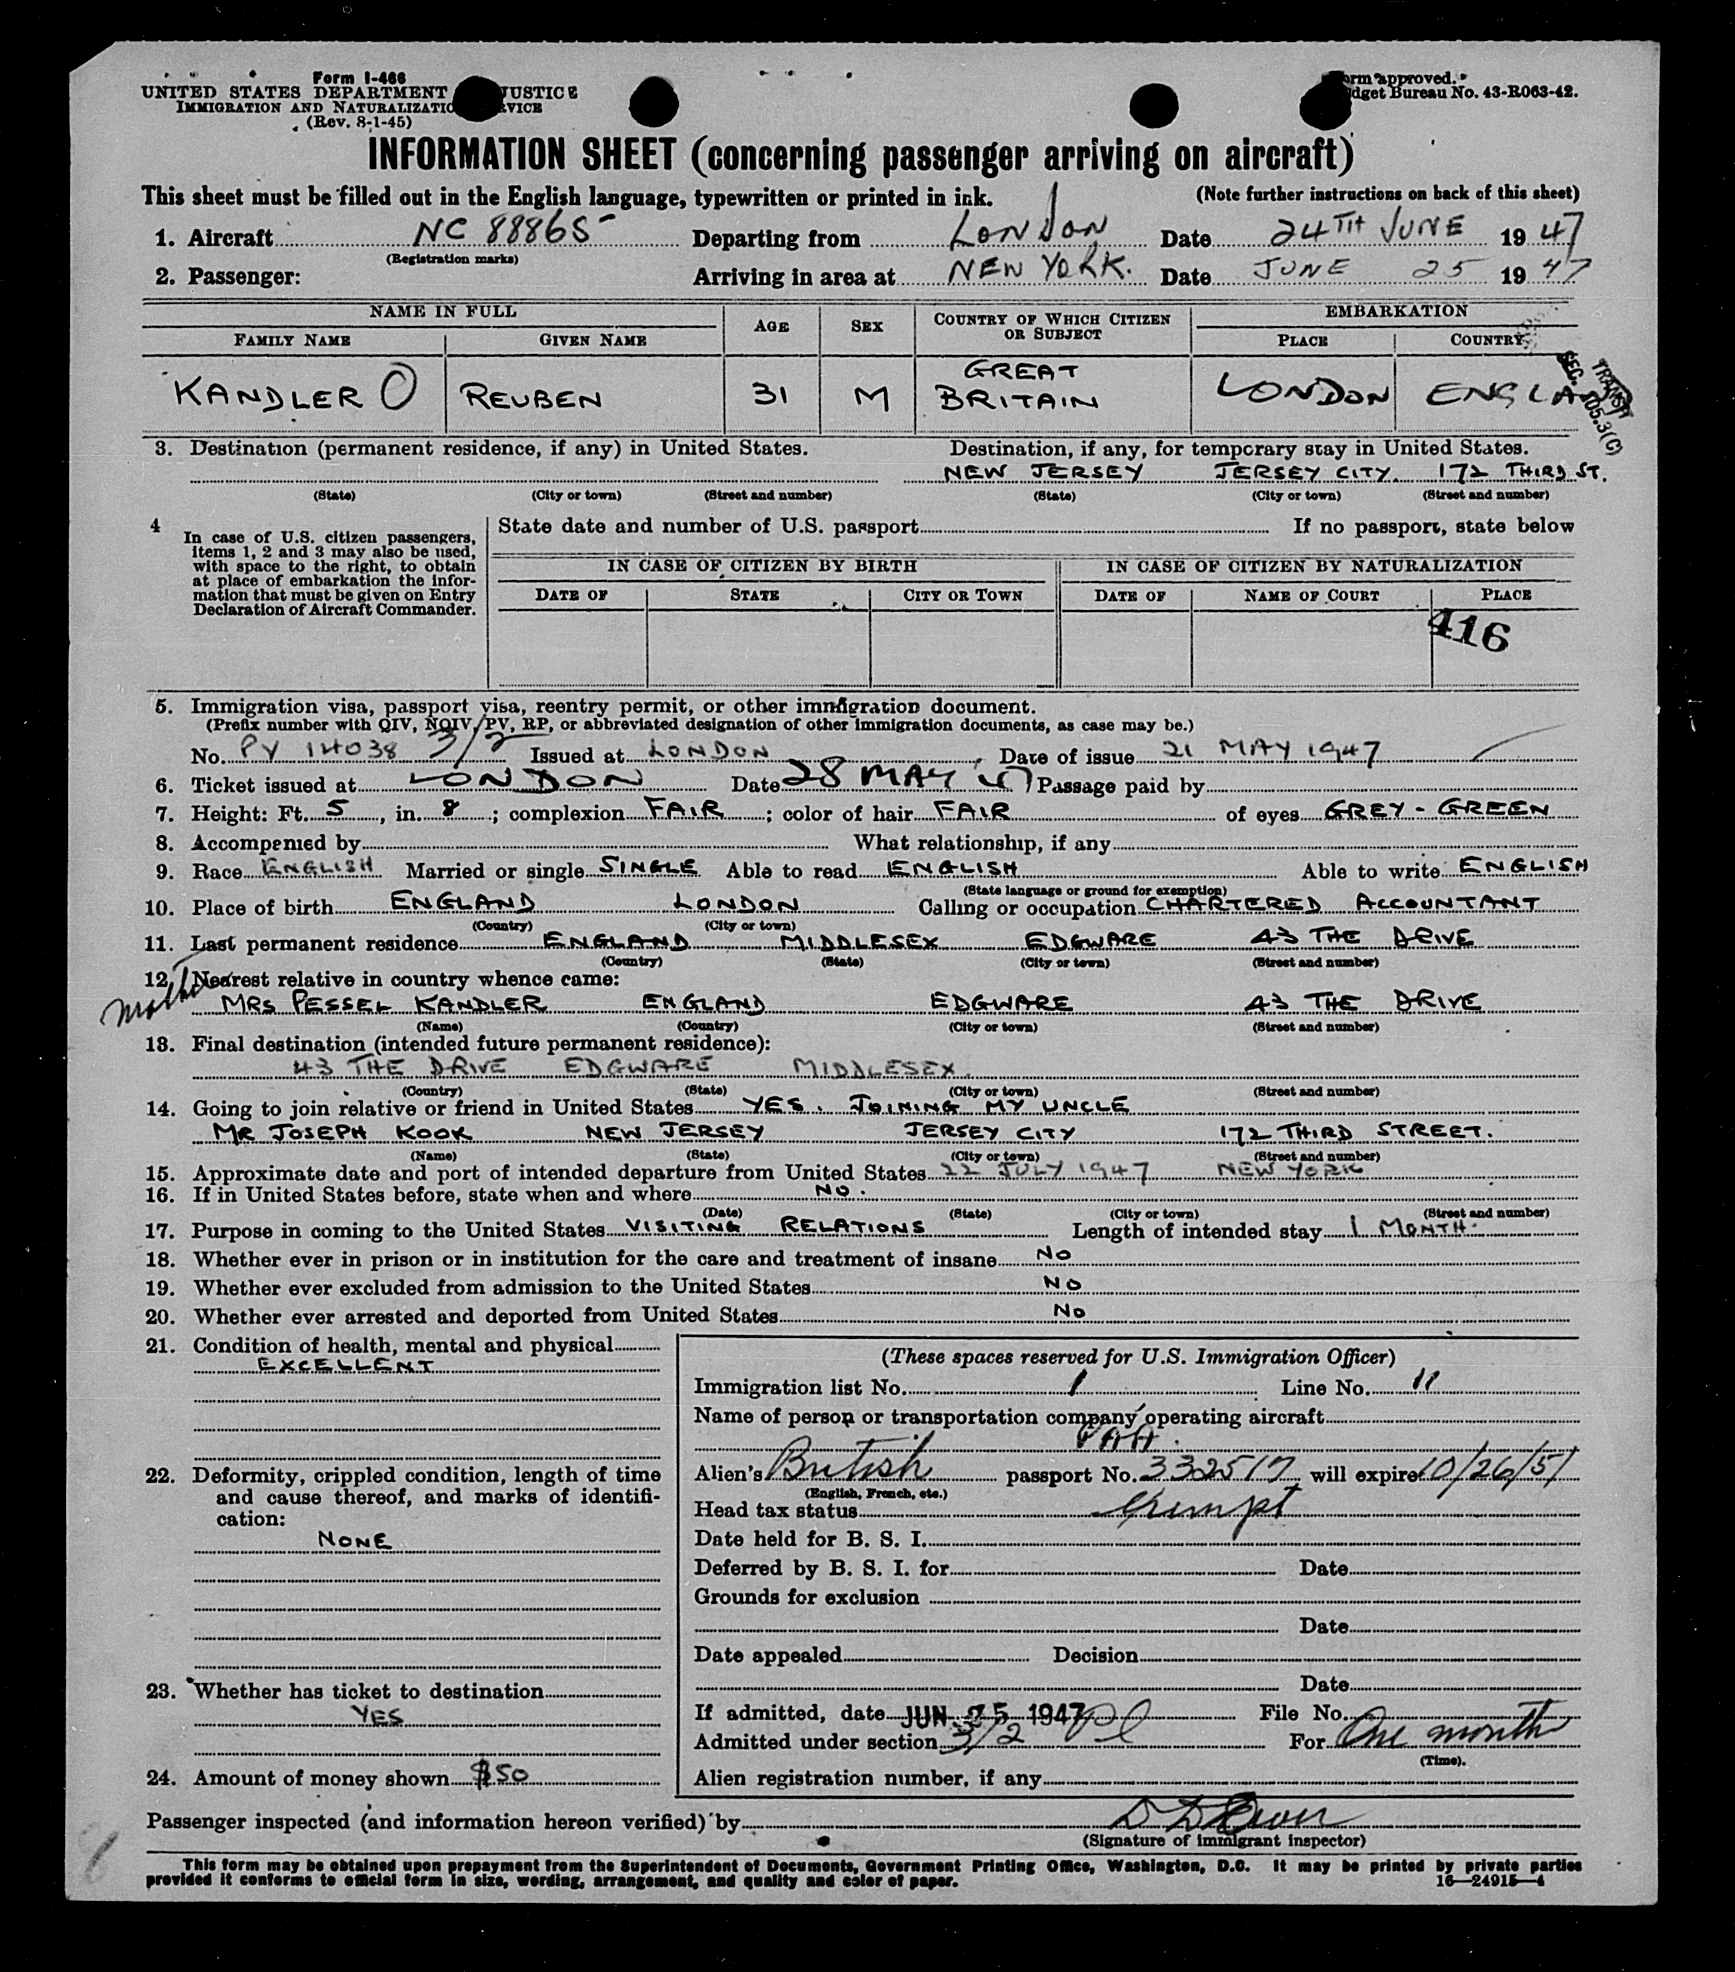 Form I-466
UNITED STATES DEPARTMENT JUSTICE
IMMIGRATION AND NATURALIZATIO RVICE
(Rev. 8-1-45)
orm approved.
dget Bureau No. 43-R063-42.
INFORMATION SHEET (concerning passenger arriving on aircraft)
This sheet must be filled out in the English language, typewritten or printed in ink. (Note further instructions on back of this sheet)
1. Aircraft NC 88865 Departing from LONDON Date 24TH JUNE 1947
(Registration marks)
2. Passenger: Arriving in area at NEW YORK. Date JUNE 25 1947
NAME IN FULL AGE SEX COUNTRY OF WHICH CITIZEN OR SUBJECT EMBARKATION
FAMILY NAME GIVEN NAME PLACE COUNTRY
KANDLER O REUBEN 31 M GREAT BRITAIN LONDON ENGLAND
TRANSIT
SEC. 105.3(C)
3. Destination (permanent residence, if any) in United States. Destination, if any, for temporary stay in United States.
NEW JERSEY JERSEY CITY. 172 THIRD ST.
(State) (City or town) (Street and number) (State) (City or town) (Street and number)
4 In case of U.S. citizen passengers, items 1, 2 and 3 may also be used, with space to the right, to obtain at place of embarkation the information that must be given on Entry Declaration of Aircraft Commander.
State date and number of U.S. passport If no passport, state below
IN CASE OF CITIZEN BY BIRTH IN CASE OF CITIZEN BY NATURALIZATION
DATE OF STATE CITY OR TOWN DATE OF NAME OF COURT PLACE
416
5. Immigration visa, passport visa, reentry permit, or other immigration document.
(Prefix number with QIV, NQIV, PV, RP, or abbreviated designation of other immigration documents, as case may be.)
No. PV 14038 3/2 Issued at LONDON Date of issue 21 MAY 1947
6. Ticket issued at LONDON Date 28 MAY 47 Passage paid by
7. Height: Ft. 5, in. 8; complexion FAIR; color of hair FAIR of eyes GREY - GREEN
8. Accompanied by What relationship, if any
9. Race ENGLISH Married or single SINGLE Able to read ENGLISH Able to write ENGLISH
(State language or ground for exemption)
10. Place of birth ENGLAND LONDON Calling or occupation CHARTERED ACCOUNTANT
(Country) (City or town)
11. Last permanent residence ENGLAND MIDDLESEX EDGWARE 43 THE DRIVE
(Country) (State) (City or town) (Street and number)
12. Nearest relative in country whence came:
Mother MRS PESSEL KANDLER ENGLAND EDGWARE 43 THE DRIVE
(Name) (Country) (City or town) (Street and number)
13. Final destination (intended future permanent residence):
43 THE DRIVE EDGWARE MIDDLESEX.
(Country) (State) (City or town) (Street and number)
14. Going to join relative or friend in United States YES. JOINING MY UNCLE
MR JOSEPH KOOK NEW JERSEY JERSEY CITY 172 THIRD STREET.
(Name) (State) (City or town) (Street and number)
15. Approximate date and port of intended departure from United States 22 JULY 1947 NEW YORK
16. If in United States before, state when and where NO.
(Date) (State) (City or town) (Street and number)
17. Purpose in coming to the United States VISITING RELATIONS Length of intended stay 1 MONTH.
18. Whether ever in prison or in institution for the care and treatment of insane NO
19. Whether ever excluded from admission to the United States NO
20. Whether ever arrested and deported from United States NO
21. Condition of health, mental and physical
EXCELLENT
22. Deformity, crippled condition, length of time and cause thereof, and marks of identification:
NONE
23. Whether has ticket to destination
YES
24. Amount of money shown $50
(These spaces reserved for U.S. Immigration Officer)
Immigration list No. 1 Line No. 11
Name of person or transportation company operating aircraft
PAA.
Alien's British passport No. 332517 will expire 10/26/51
(English, French, etc.)
Head tax status exempt
Date held for B. S. I.
Deferred by B. S. I. for Date
Grounds for exclusion
Date
Date appealed Decision
Date
If admitted, date JUN 25 1947 File No.
Admitted under section 3/2 For One month
(Time).
Alien registration number, if any
Passenger inspected (and information hereon verified) by
(Signature of immigrant inspector)
This form may be obtained upon prepayment from the Superintendent of Documents, Government Printing Office, Washington, D.C. It may be printed by private parties
provided it conforms to official form in size, wording, arrangement, and quality and color of paper. 16—24915-4